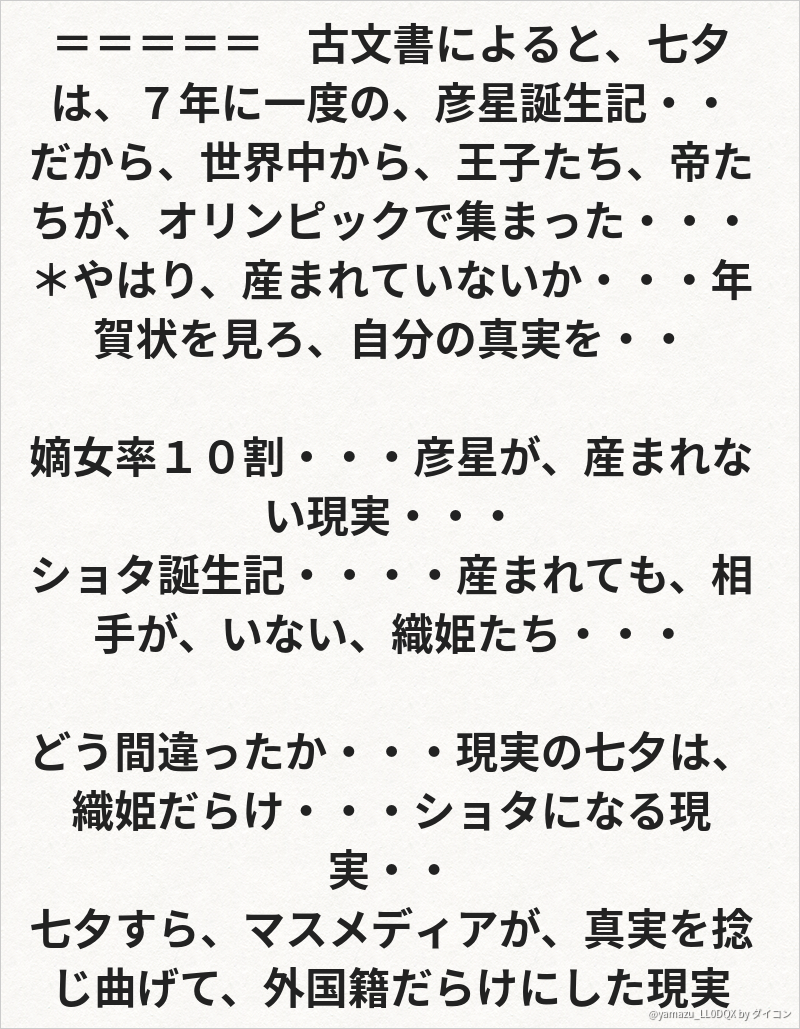 ＝＝＝＝＝　古文書によると、七夕
は、７年に一度の、彦星誕生記・・
だから、世界中から、王子たち、帝た
ちが、オリンピックで集まった・・・
＊やはり、産まれていないか・・・年
賀状を見ろ、自分の真実を・・
嫡女率１０割・・・彦星が、産まれな
い現実・・・
ショタ誕生記・・・・産まれても、相
手が、いない、織姫たち・・・
どう間違ったか・・・現実の七夕は、
織姫だらけ・・・ショタになる現
実・・
七夕すら、マスメディアが、真実を捻
じ曲げて、外国籍だらけにした現実
@yamazu_LL0DQX by ダイコン